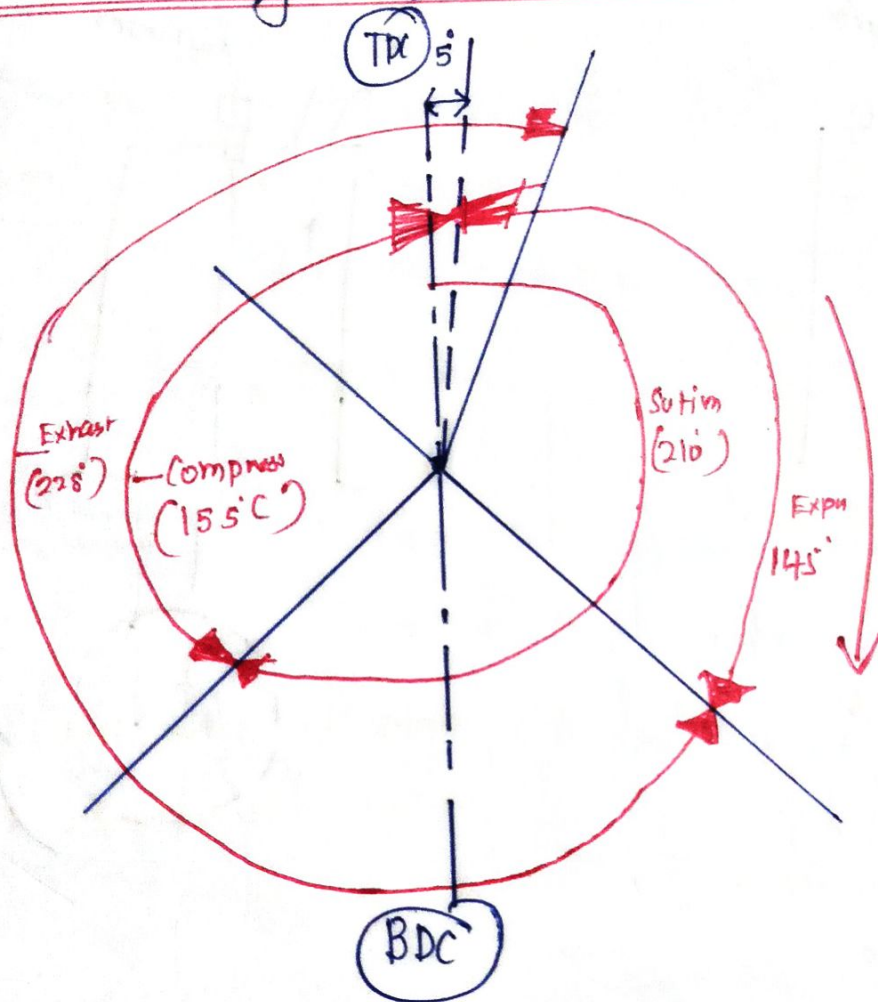 TDC 5°
Exhast
(225°)
Compress
(155°C)
Sutim
(210°)
Expn
145°
BDC